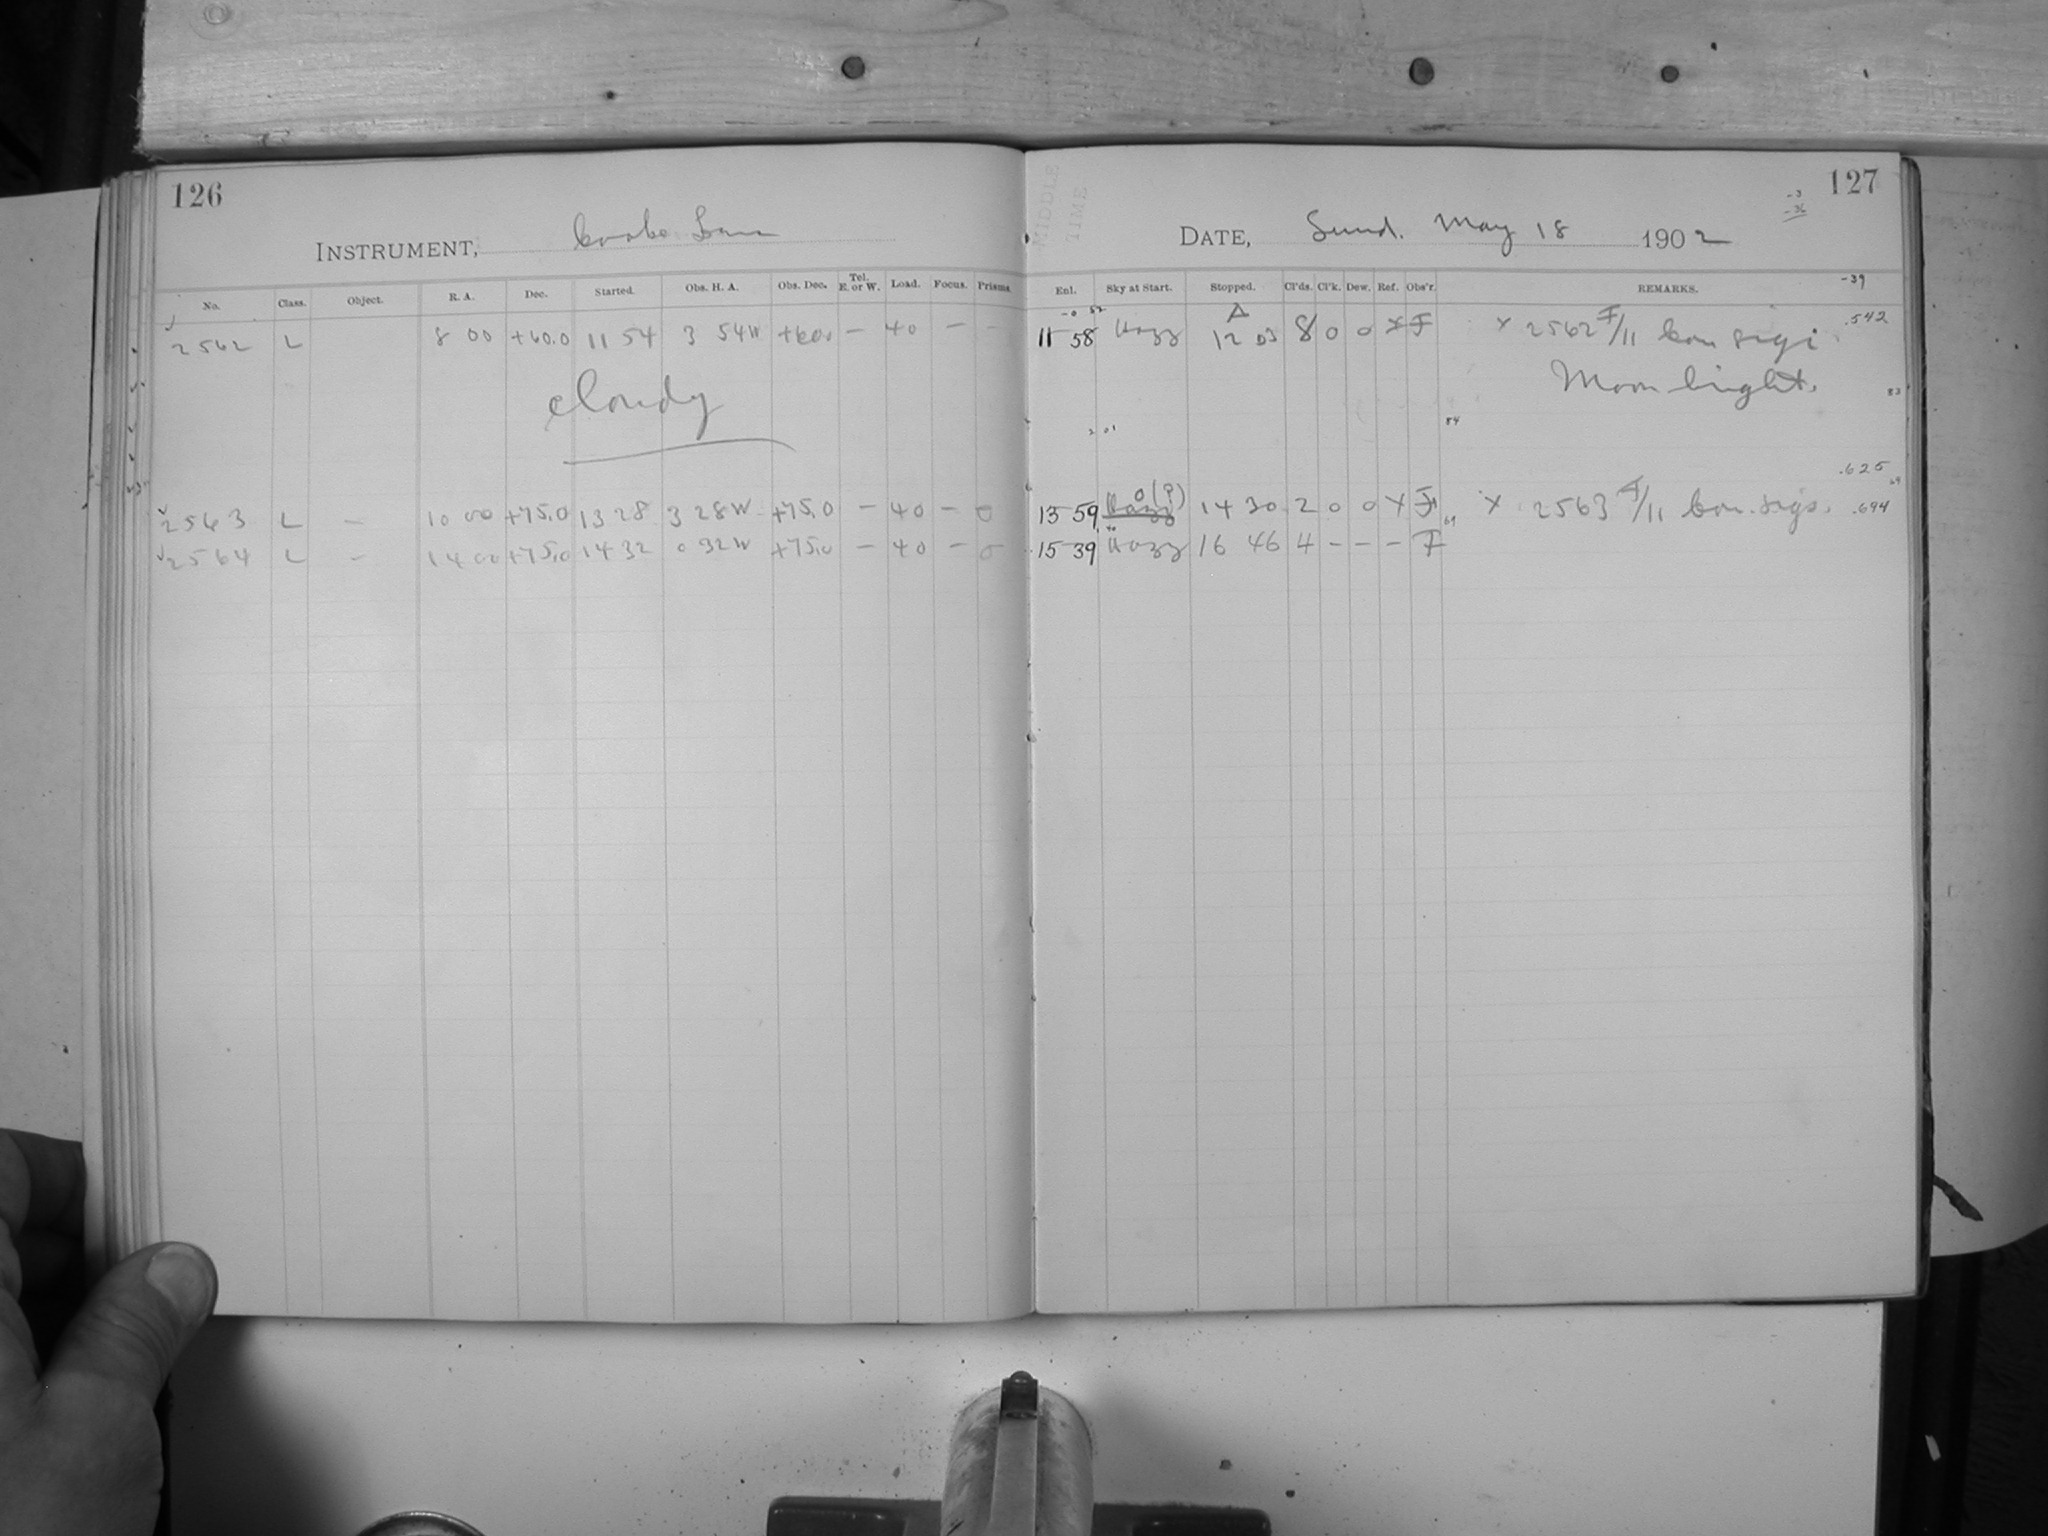 126
INSTRUMENT, Cooke Lens
No. Class. Object. R. A. Dec. Started. Obs. H. A. Obs. Dec. Tel. E. or W. Load. Focus. Prisms
2562 L 8 00 +60.0 11 54 3 54W +60.0 — 40 — —
cloudy
2563 L — 10 00 +75.0 13 28 3 28W +75.0 — 40 — 0
2564 L — 14 00 +75.0 14 32 0 32W +75.0 — 40 — 0
MIDDLE
TIME
127
-3
-36
DATE, Sund. May 18 1902
-39
Enl. Sky at Start. Stopped. Cl'ds. Cl'k. Dew. Ref. Obs'r. REMARKS.
-0 52
11 58 Hazy A 12 03 8 0 0 x F x 2562 F/11 .542
Moon bright. 83
2 01 84
.625
69
13 59 Hazy 0(?) 14 30 2 0 0 x F 69 x 2563 F/11 .694
15 39 Hazy 16 46 4 - - - F